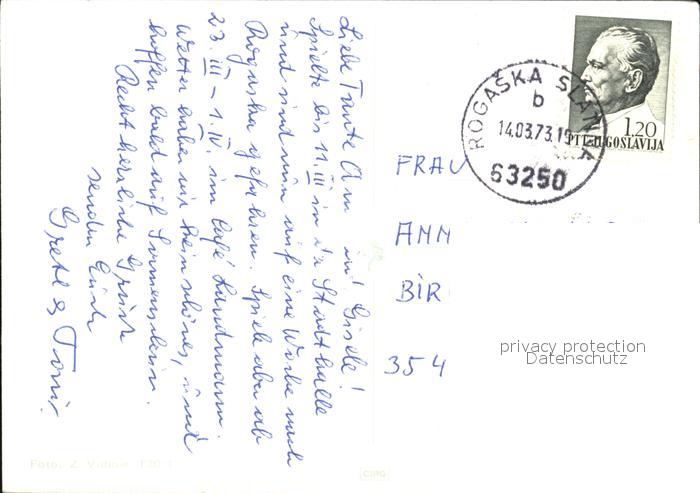 Liebe Tante An    in! Gisele!
Spielte bis 11. III in der Stadthalle
und sind nun auf eine Woche nach
Rogaska gefahren. Spiele aber ab
27. III – 1. IV. im Café Landmann.
Wetter haben wir kein schönes,
hoffen bald auf Sonnenschein.
Recht herzliche Grüße
senden Euch
Gretl & Toni.
ROGAŠKA SLATINA
b
14.03.73.19
63250
1.20
PTT JUGOSLAVIJA
FRAU
ANN
BIR
354
privacy protection
Datenschutz
Foto: Z.